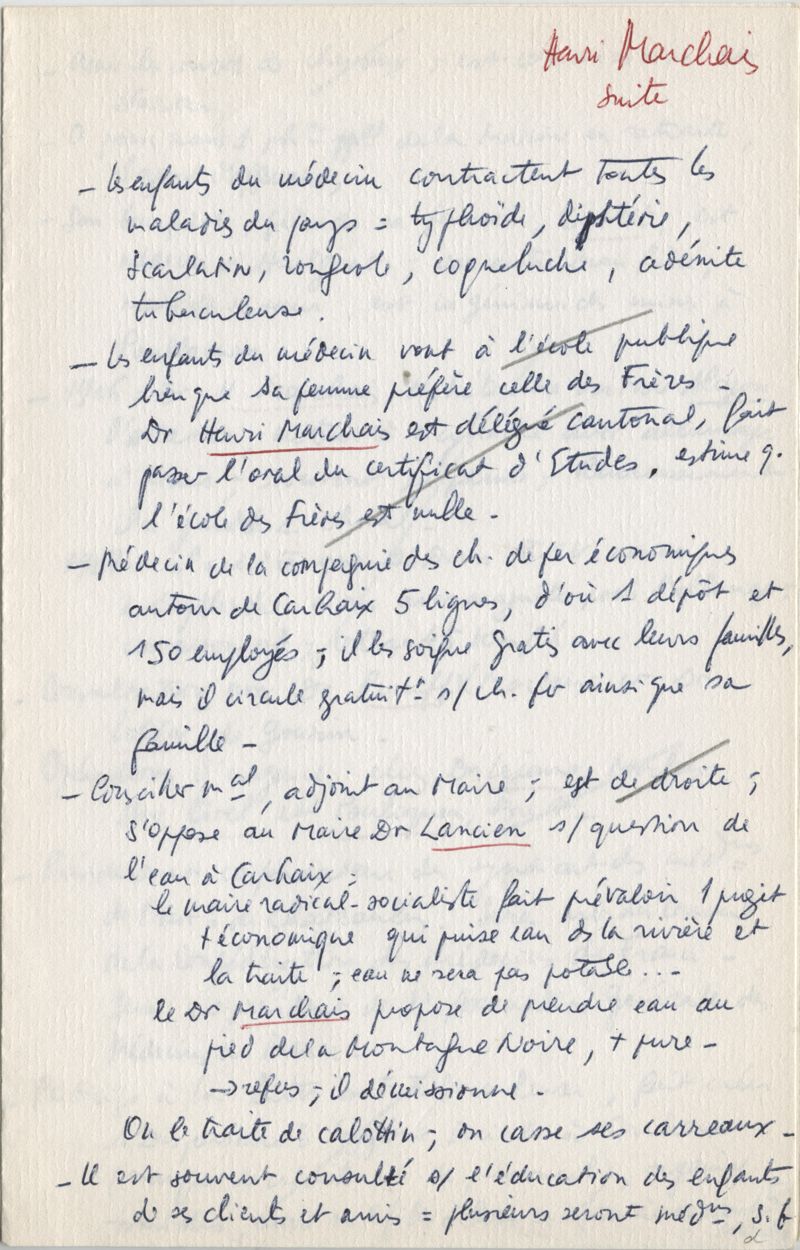 Henri Marchais
suite
- les enfants du médecin contractent toutes les
maladies du pays = typhoïde, diphtérie,
scarlatine, rougeole, coqueluche, adénite
tuberculeuse.
- Les enfants du médecin vont à l'école publique
bien que sa femme préfère celle des Frères -
Dr Henri Marchais est délégué cantonal, fait
passer l'oral du certificat d'Etudes, estime q.
l'école des Frères est nulle -
- Médecin de la compagnie des ch. de fer économiques
autour de Carhaix 5 lignes, d'où 1 dépôt et
150 employés ; il les soigne gratis avec leurs familles,
mais il circule gratuitt s/ ch. fer ainsi que sa
famille -
- Conseiller mal, adjoint au Maire ; est de droite ;
s'oppose au Maire Dr Lancien s/ question de
l'eau à Carhaix :
le maire radical-socialiste fait prévaloir 1 projet
+ économique qui puise eau ds la rivière et
la traite ; eau ne sera pas potable...-
le Dr Marchais propose de prendre eau au
pied de la Montagne Noire, + pure -
→ refus ; il démissionne.
On le traite de calottin ; on casse ses carreaux -
- Il est souvent consulté s/ l'éducation des enfants
de ses clients et amis = plusieurs seront médns, s.f
d